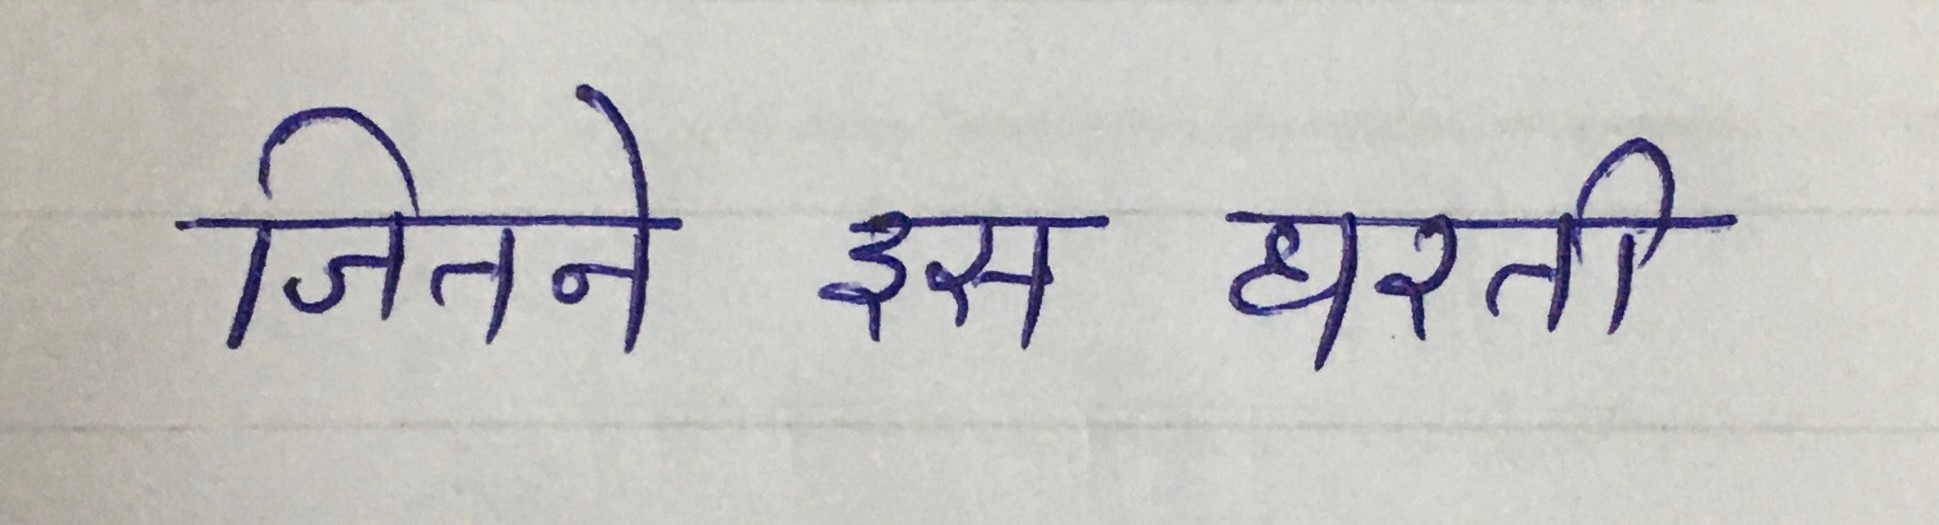 जितने इस धरती